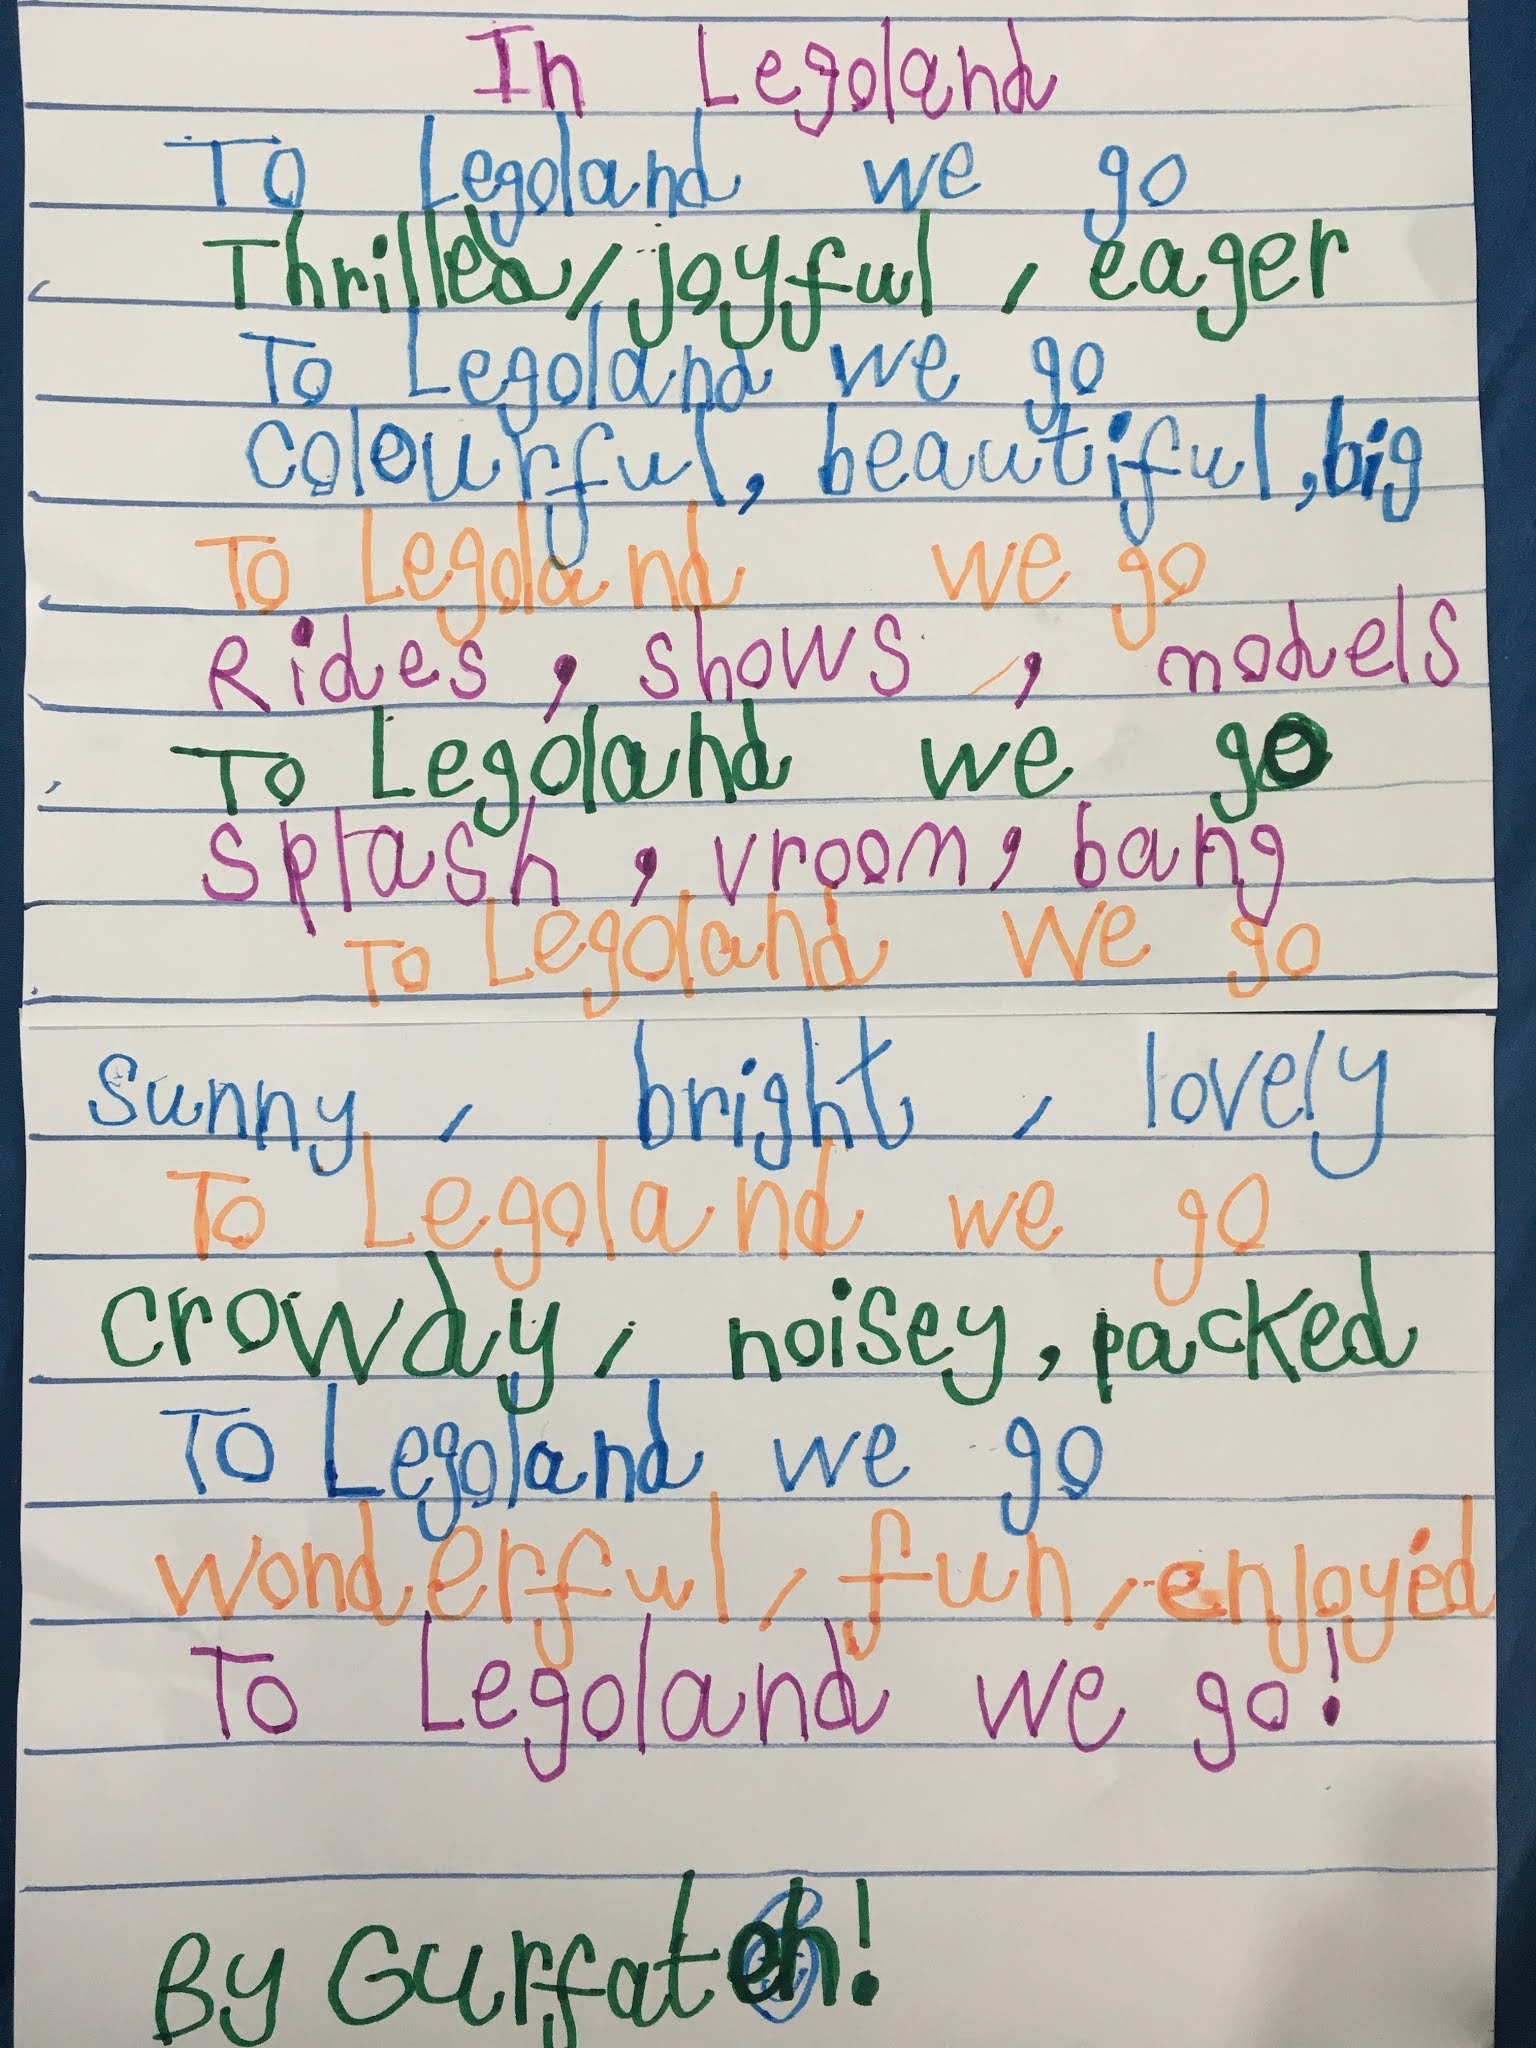 In Legoland
To Legoland we go
Thrilled, joyful, eager
To Legoland we go
Colourful, beautiful, big
To Legoland we go
Rides, shows, models
To Legoland we go
Splash, vroom, bang
To Legoland we go
Sunny, bright, lovely
To Legoland we go
Crowdy, noisey, packed
To Legoland we go
wonderful, fun, enjoyed
To Legoland we go!
By Gurfateh!